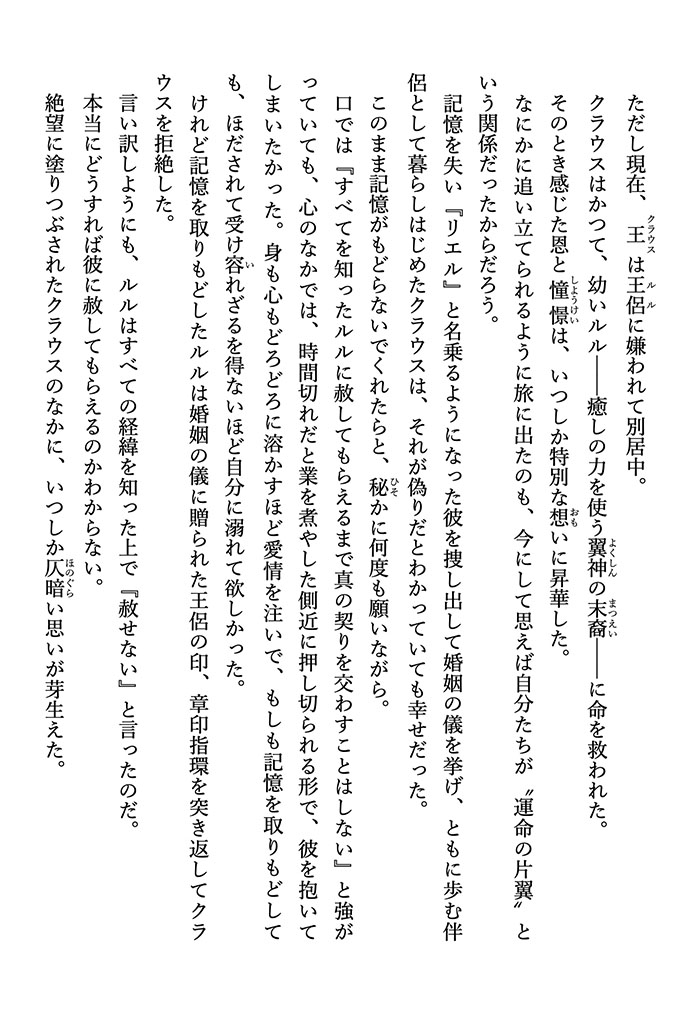 ただし現在、王は王侶に嫌われて別居中。
クラウスはかつて、幼いルル――癒しの力を使う翼神の末裔――に命を救われた。
そのとき感じた恩と憧憬は、いつしか特別な想いに昇華した。
なにかに追い立てられるように旅に出たのも、今にして思えば自分たちが〝運命の片翼〟と
いう関係だったからだろう。
記憶を失い『リエル』と名乗るようになった彼を捜し出して婚姻の儀を挙げ、ともに歩む伴
侶として暮らしはじめたクラウスは、それが偽りだとわかっていても幸せだった。
このまま記憶がもどらないでくれたらと、秘かに何度も願いながら。
口では『すべてを知ったルルに赦してもらえるまで真の契りを交わすことはしない』と強が
っていても、心のなかでは、時間切れだと業を煮やした側近に押し切られる形で、彼を抱いて
しまいたかった。身も心もどろどろに溶かすほど愛情を注いで、もしも記憶を取りもどして
も、ほだされて受け容れざるを得ないほど自分に溺れて欲しかった。
けれど記憶を取りもどしたルルは婚姻の儀に贈られた王侶の印、章印指環を突き返してクラ
ウスを拒絶した。
言い訳しようにも、ルルはすべての経緯を知った上で『赦せない』と言ったのだ。
本当にどうすれば彼に赦してもらえるのかわからない。
絶望に塗りつぶされたクラウスのなかに、いつしか仄暗い思いが芽生えた。
クラウス
ルル
よくしん
まつえい
しようけい
おも
ひそ
い
ほのぐら